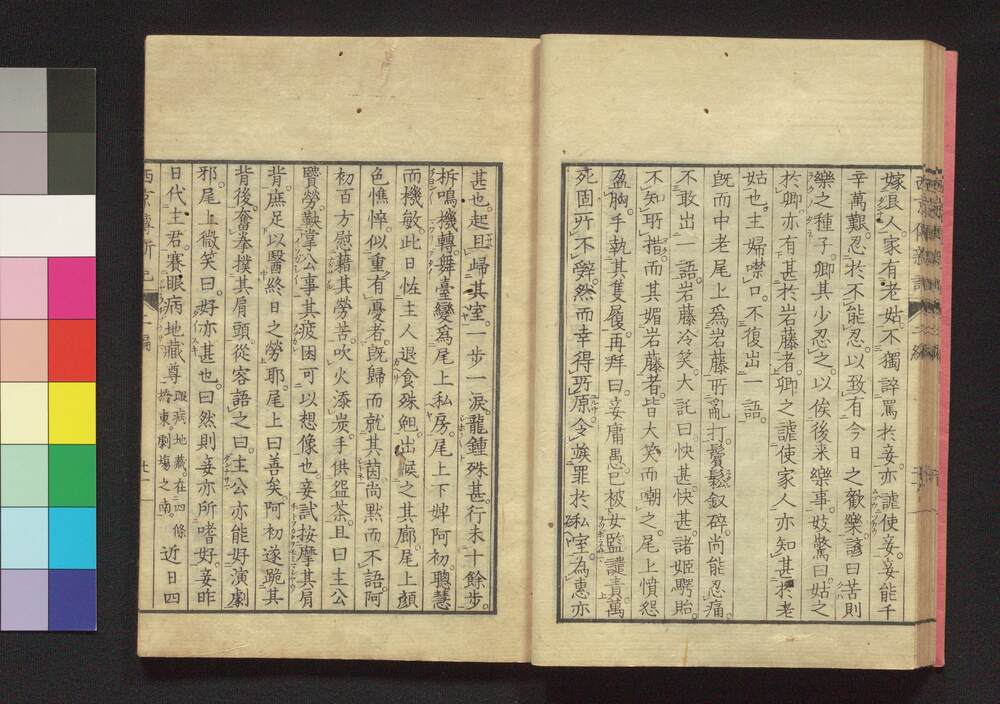 嫁退人。家有老姑。不獨誶罵於妾。亦謔使妾。妾能千
辛萬艱。忍於不能忍。以致有今日之歡樂。諺曰苦則
樂之種子。卿其少忍之。以俟後来樂事。妓驚曰。姑之
於卿亦有甚於岩藤者。卿之謔使家人亦知甚於老
姑也。主婦噤口。不復出一語。
既而中老尾上為岩藤所亂打。鬢鬆釵碎。尚能忍痛。
不敢出一語。岩藤冷笑。大託曰快甚。快甚。諸姬愕眙。
不知所措。而其媚岩藤者。皆大笑而嘲之。尾上憤怨
盈胸。手執其隻履。再拜曰。妾庸愚。已被女監譴責。萬
死固所不辭。然而幸得所原。令竢罪於私室。為惠亦
甚也。起且歸其室。一步一淚。龍鍾殊甚。行未十餘步。
柝鳴機轉。舞臺變為尾上私房。尾上下婢阿初。聰慧
而機敏。此日恠主人退食殊𫢉。出候之其廊。尾上顏
色憔悴。似重有憂者。既歸而就其茵。尚默而不語。阿
初百方慰藉其勞苦。吹火添炭。手供盌茶。且曰。主公
賢勞。歎掌公事。其疲困可以想像也。妾試按摩其肩
背。庶足以醫終日之勞耶。尾上曰善矣。阿初遂跪其
背後。奮拳撲其肩頭。從容語之曰。主公亦能好演劇
邪。尾上微笑曰。好亦甚也。曰然則妾亦所嗜好。妾昨
日代主君。賽眼病地藏尊眼疾地藏。在四條橋東。劇場之南。近日四